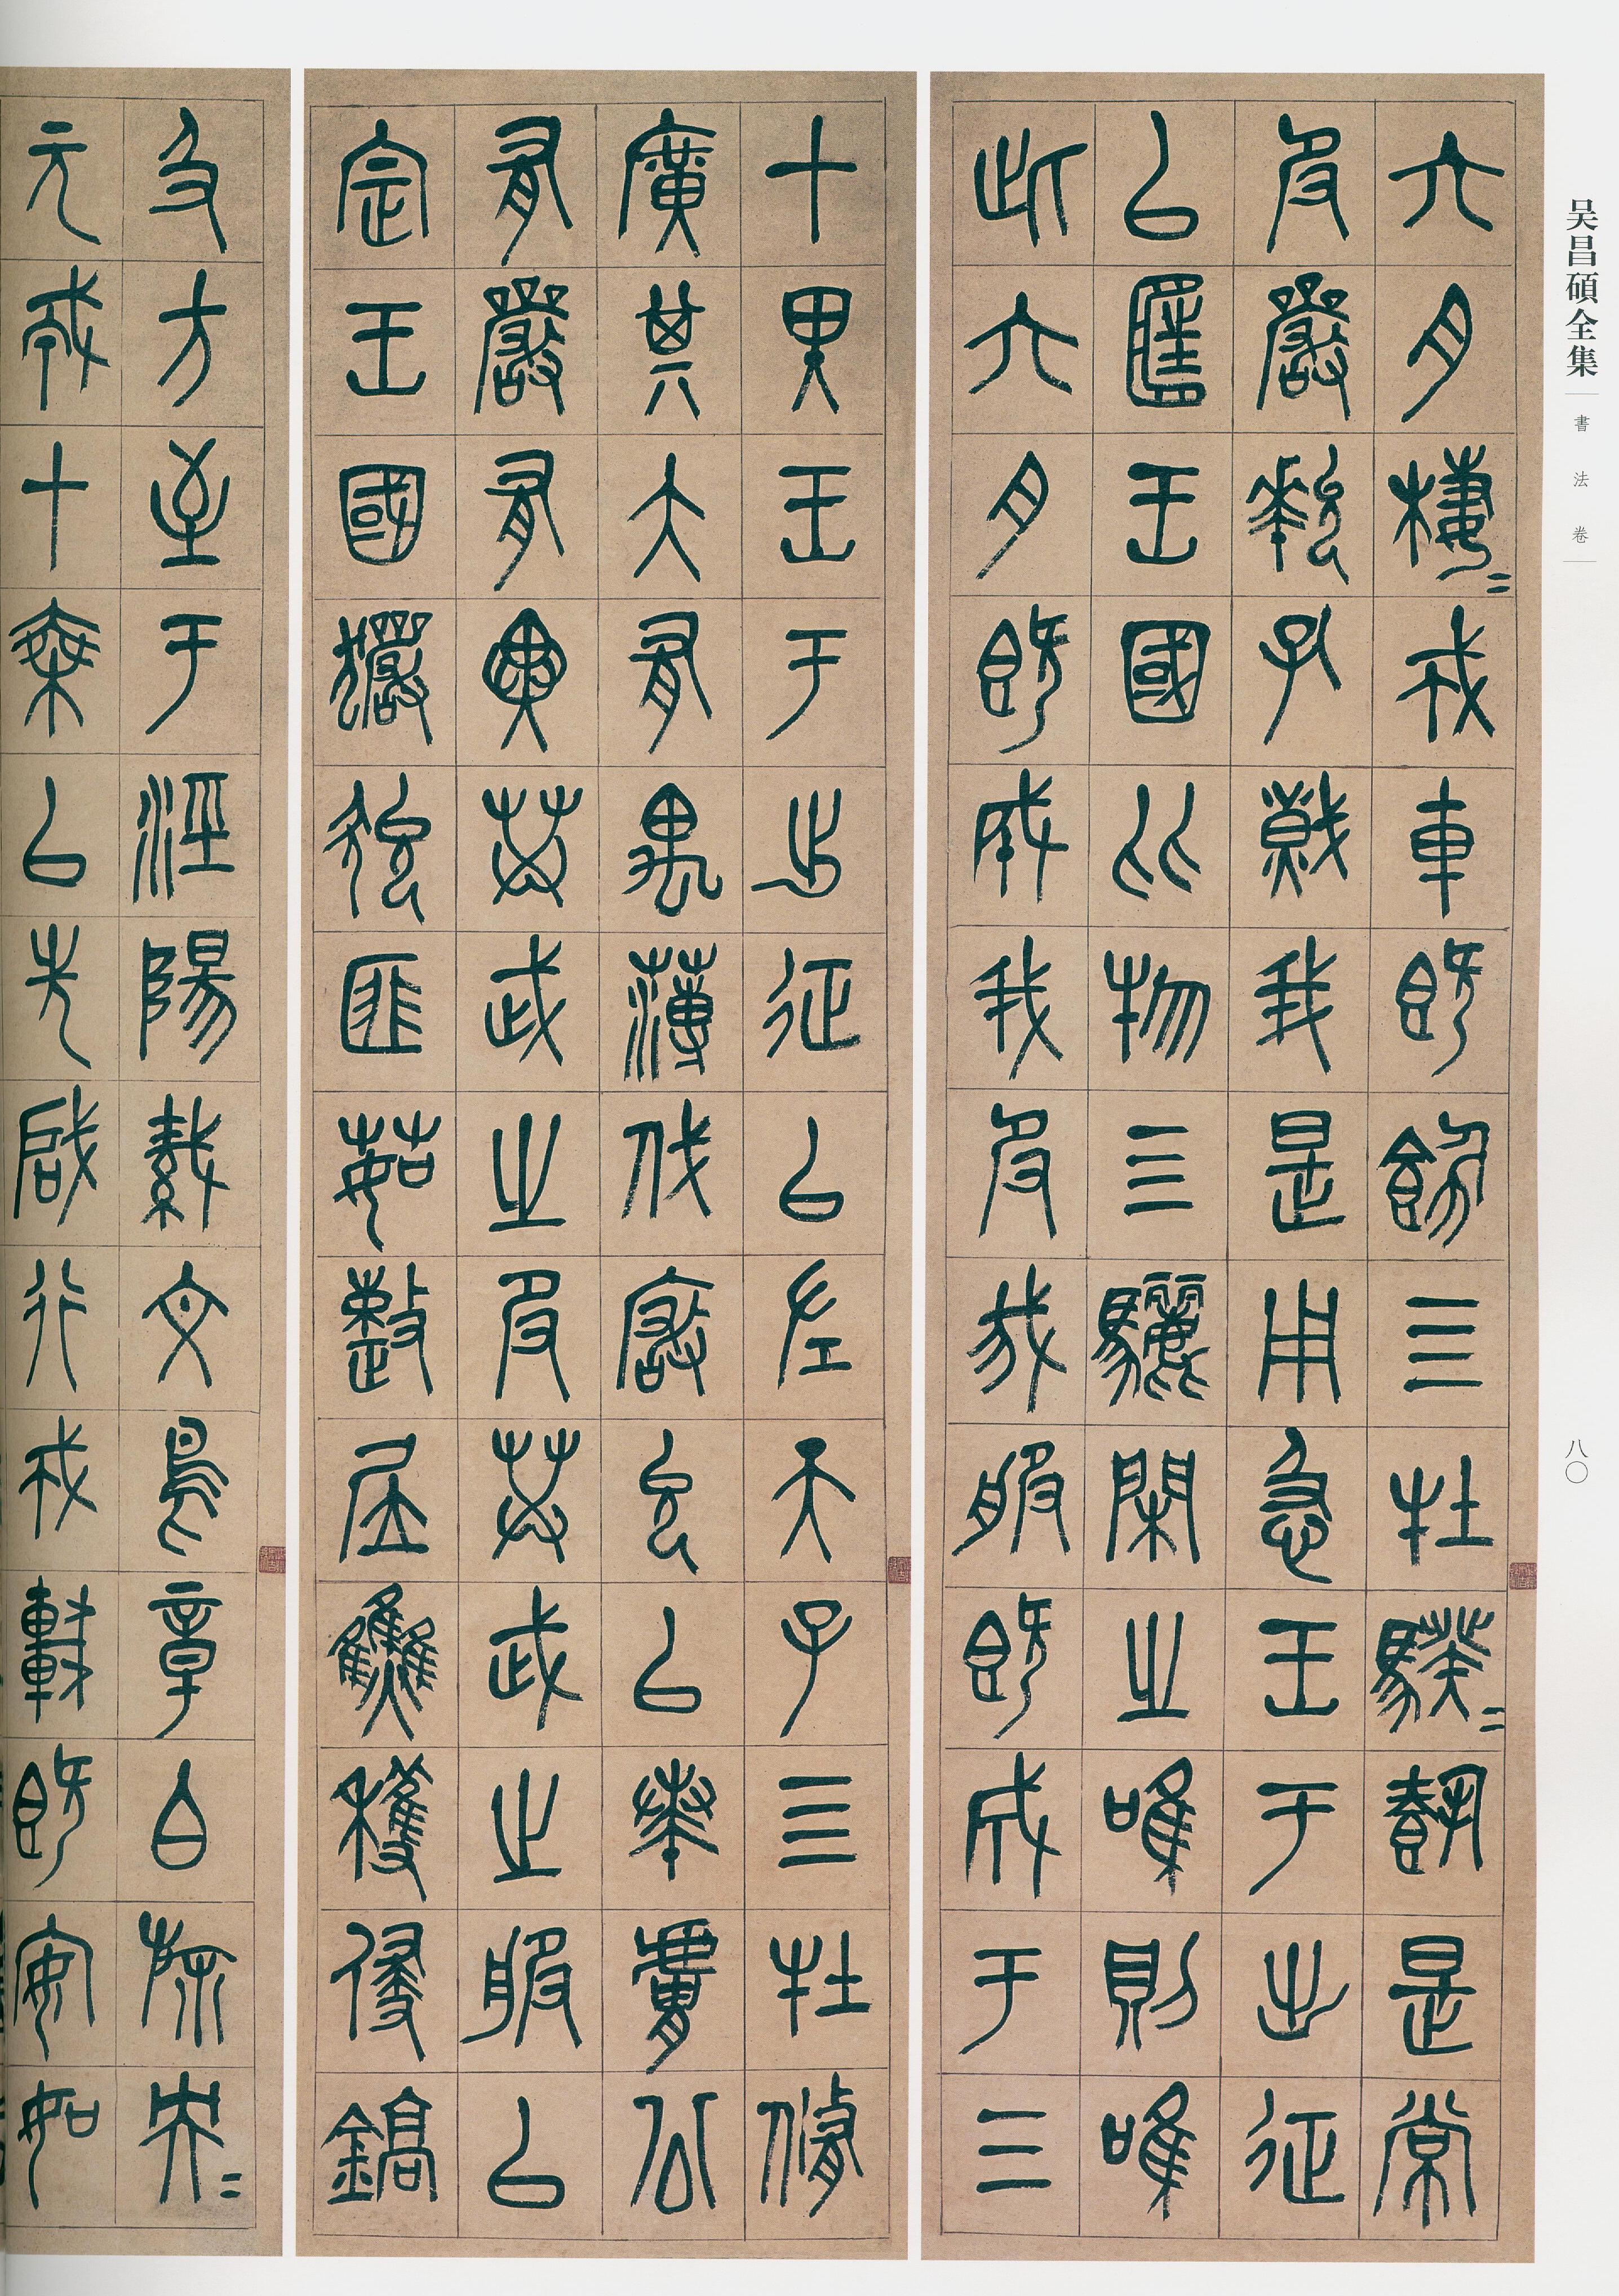 吴昌碩全集
書法卷
八〇
六月棲=戎車既飭三牡騤=載是常
𠬝嚴狁孔熾我是用急王于出征
以匡王國比物三驪閑之唯則唯
此六月既成我𠬝我服既成于三
十里王于出征以左天子三牡脩
廣其大有禺薄伐嚴允以奏膚公
有嚴有翼共武之𠬝共武之服以
定王國玁狁匪茹整居焦穫侵鎬
及方至于涇陽織文鳥章白旆央=
元戎十乘以先啟行戎車既安如